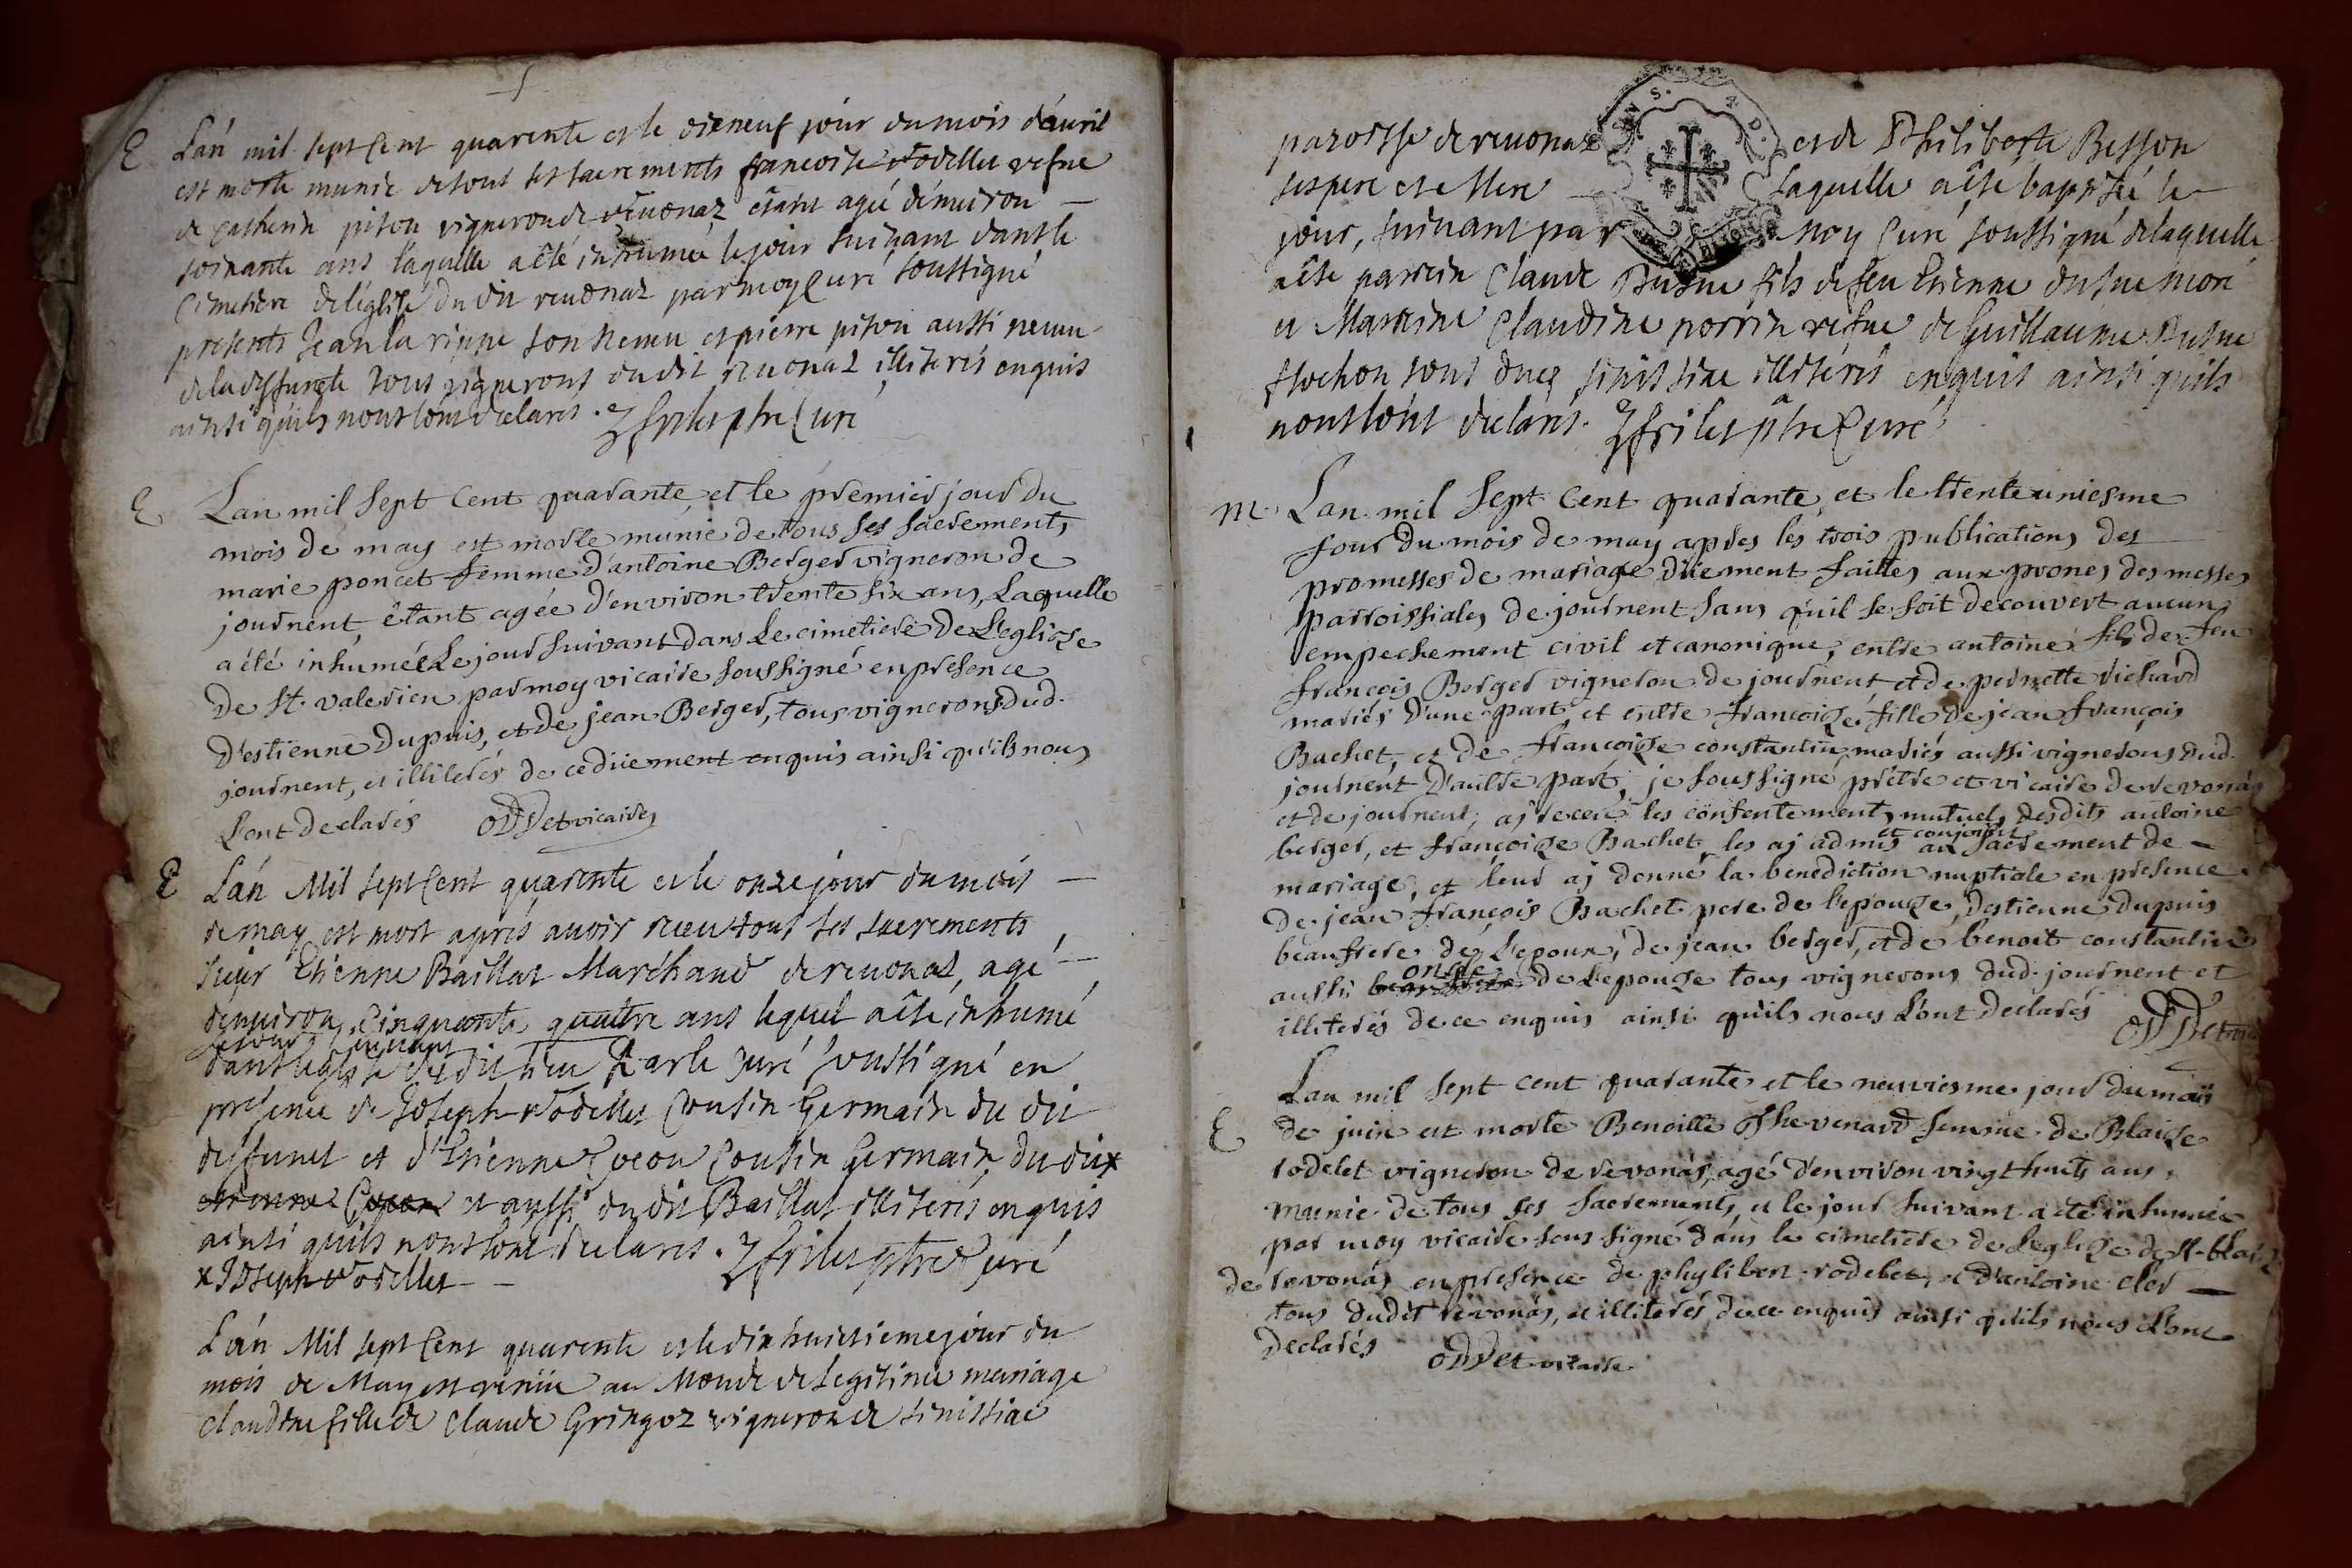 E Lán mil sept Cent quarente et le dixneuf jour du mois dávril
est morte munie de tous ses sacrements francoise rodellet vefue
de catherin piton vigneron de revonaz étant agé d'environ —
soixante ans laquelle a été inhumée le jour suivant dans le
Cimetiere de léglise du dit revonaz par moy Curé soussigné
présents Jean la rippe son neveu et pierre piton aussi neveu
de la deffuncte tous vignerons du dit revonaz illiterés enquis
ainsi quils nous lont declarés. ptre Curé
E Lan mil Sept Cent quarante, et le premier jour du
mois de may est morte munie de tous ses sacrements
marie poncet femme d'antoine Berger vigneron de
journent, êtant agée d'environ trente six ans, Laquelle
a été inhumée Le jour suivant dans Le cimetiere de L'eglise
de St. valerien par moy vicaire soussigné en presence
d'estienne Dupuis, et de jean Berger, tous vignerons dud.
journent, et illiterés de ce düement enquis ainsi qu'ils nous
L'ont declarés oddet vicaire
E Lán Mil sept Cent quarente et le onze jour du mois —
de may est mort aprés avoir receu tous ses sacrements
sieur Etienne Baillat Marchand de revonas, agé —
denviron Cinquante quattre ans lequel a été inhumé
le jour suivant
dans léglise du dit lieu Par le curé soussigné en
présence de Joseph rodellet Cousin Germain du dit
deffunct et d'Etienne Cocon Cousin Germain du dit x
et aussi du dit Baillat illiterés enquis
ainsi quils nous lont declarés. ptre Curé
x Joseph rodellet —
Lán Mil sept Cent quarente et le dix huictieme jour du
mois de May est venüe au Monde de legitime mariage
claudine fille de Claude Gringoz vigneron de senissiac
paroisse de revonaz et de Philiberte Besson
ses pere et Mere laquelle a été baptisée le —
jour, suivant par Moy Curé soussigné de laquelle
a été parrein Claude Dusue fils de feu Etienne dusue
et Marreine Claudine vefue de Guillaume Dusue
tous deux senissiac illiterés enquis ainsi quils
nous lont declarés. ptre Curé
m. Lan mil Sept Cent quarante, et le trenteuniesme
jour du mois de may apres les trois publications des
promesses de mariage düement faittes aux prones des messes
parroissiales de journent sans qu'il se soit decouvert aucun
empechement civil et canonique, entre antoine fils de feu
françois Berger vigneron de journent et de pernette richard
mariés d'une part, et entre françoise fille de jean françois
Bachet, et de françoise constantin mariés aussi vignerons dud.
journent d'aultre part, je soussigné prêtre et vicaire de revonas
et de journent, aj receu les consentements mutuels desdits antoine
berger, et françoise Bachet les aj admis et conjoint au sacrement de —
mariage, et leur aj donné la benediction nuptiale en presence
de jean françois Bachet pere de l'epouse, d'estienne dupuis
beaufrere de L'epoux, de jean berger, et de benoit constantin
aussi oncle de L'epouse tous vignerons dud. journent et
illiterés de ce enquis ainsi qu'ils nous L'ont declarés oddet
Lan mil sept cent quarante et le neuviesme jour du mois
E de juin est morte Benoitte Thevenard femme de Blaise
rodelet vigneron de revonas, agé d'environ vingthuit ans,
munie de tous ses sacrements, et le jour suivant a été inhumée
par moy vicaire sous signé dans le cimetiere de L'eglise de St. blaise
de revonas en presence de phylibert rodelet, et d'antoine cler —
tous dudit revonas, et illiterés de ce enquis ainsi qu'ils nous L'ont
declarés oddet vicaire